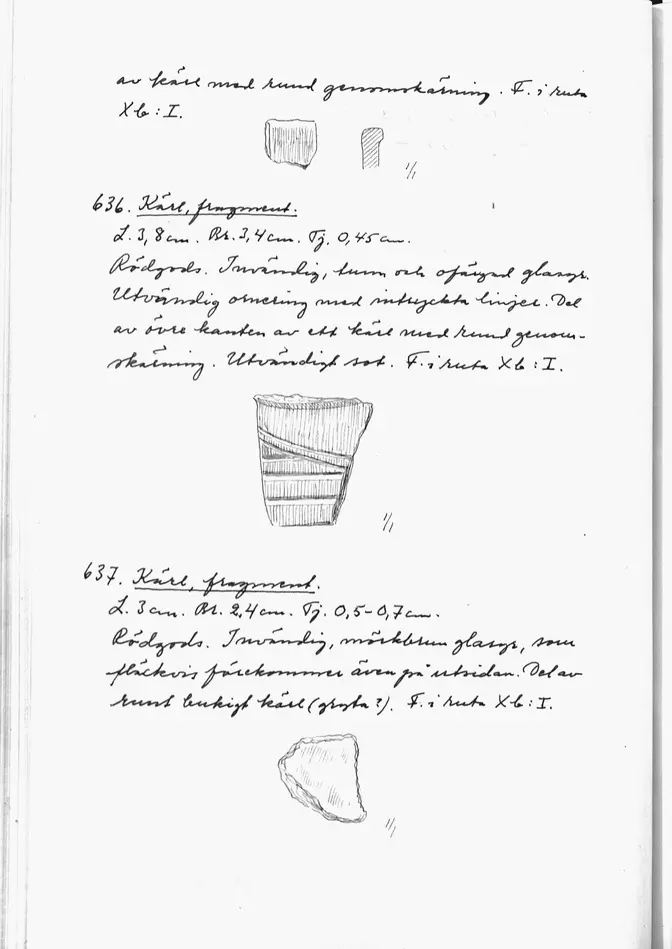 av kärl med rund genomskärning. F. i ruta
Xb: I.
1/1
636. Kärl, fragment.
L. 3,8 cm. Br. 3,4 cm. Tj. 0,45 cm.
Rödgods. Invändig, tunn och ofärgad glasyr.
Utvändig ornering med intryckta linjer. Del
av övre kanten av ett kärl med rund genom-
skärning. Utvändigt sot. F. i ruta Xb: I.
1/1
637. Kärl, fragment.
L. 3 cm. Br. 2,4 cm. Tj. 0,5-0,7 cm.
Rödgods. Invändig, mörkbrun glasyr, som
fläckvis förekommer även på utsidan. Del av
runt bukigt kärl (gryta?). F. i ruta Xb: I.
1/1